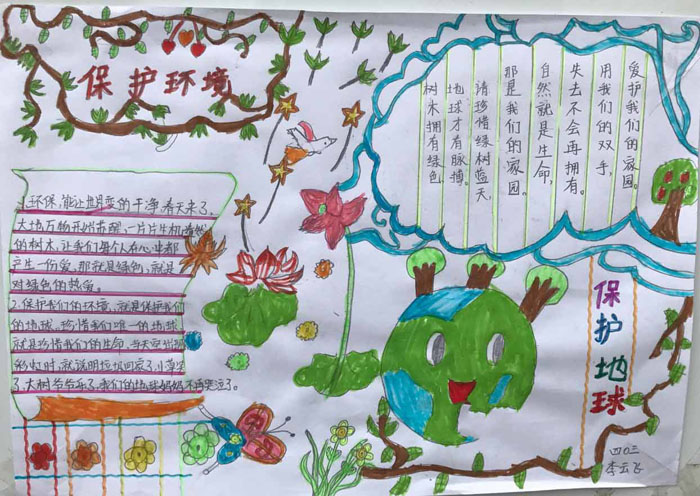 保护环境
1.环保,能让世界变的干净,春天来了,
大地万物开始苏醒,一片片生机勃勃
的树木,让我们每个人在心中都
产生一份爱,那就是绿色,就是
对绿色的热爱。
2.保护我们的环境,就是保护我们
的地球,珍惜我们唯一的地球,
就是珍惜我们的生命,当天空出现
彩虹时,就说明垃圾回家了,小草笑
3.大树爷爷乐了,我们的地球妈妈不再哭泣了。
爱护我们的家园。
用我们的双手,
失去不会再拥有。
自然就是生命,
那是我们的家园。
请珍惜绿树蓝天,
地球才有脉搏。
树木拥有绿色
保护地球
四〇三
李云飞